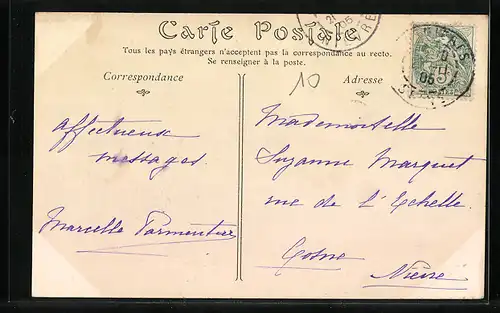 Carte Postale
Tous les pays étrangers n'acceptent pas la correspondance au recto.
Se renseigner à la poste.
Correspondance
Adresse
10
Affectueux
messages.
Marcelle Parmentier
Mademoiselle
Suzanne Marquet
rue de l'Echelle
Cosne
Nièvre
21
05
05